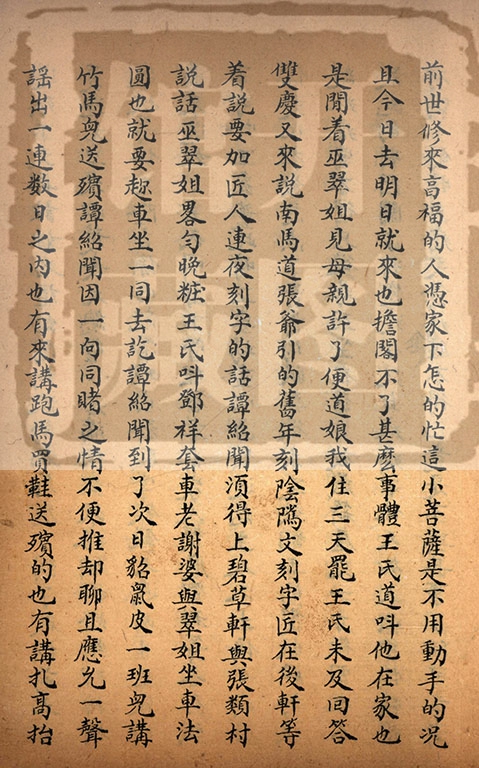 前世修來高福的人憑家下怎的忙這小菩薩是不用動手的况
且今日去明日就來也擔閣不了甚麽事體王氏道呌他在家也
是閒着巫翠姐見母親許了便道娘我住三天罷王氏未及回答
雙慶又來説南馬道張爺引的舊年刻陰隲文刻字匠在後軒等
着説要加匠人連夜刻字的話譚紹聞湏得上碧草軒與張類村
説話巫翠姐畧勻晚粧王氏呌鄧祥套車老謝婆與翠姐坐車法
圓也就要趂車坐一同去訖譚紹聞到了次日貂䑕皮一班兒講
竹馬兒送殯譚紹聞因一向同賭之情不便推却聊且應允一聲
謡出一連数日之内也有來講跑馬買鞋送殯的也有講扎高抬